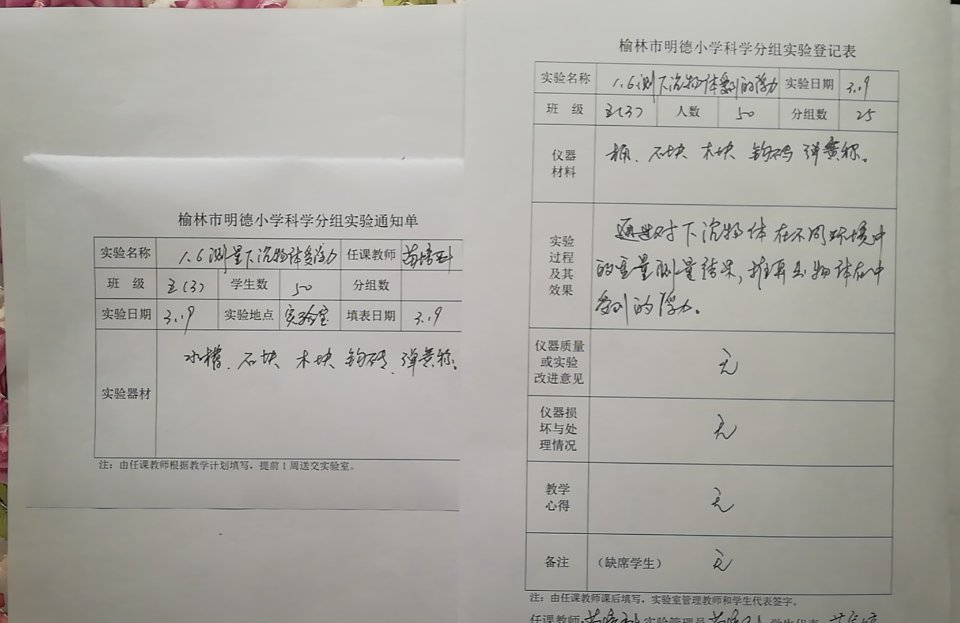 榆林市明德小学科学分组实验通知单
实验名称 1.6测量下沉物体受浮力 任课教师
班 级 五(3) 学生数 50 分组数
实验日期 3.19 实验地点 实验室 填表日期 3.19
实验器材 水槽、石块 木块 钩码、弹簧称。
注：由任课教师根据教学计划填写，提前1周送交实验室。
榆林市明德小学科学分组实验登记表
实验名称 1.6测下沉物体受到的浮力 实验日期 3.19
班 级 五(3) 人数 50 分组数 25
仪器
材料
石块 木块 钩码 弹簧称。
实验
过程
及其
效果
通过对下沉物体在不同环境中
的重量测量结果，推算出物体在水中
受到的浮力。
仪器质量
或实验
改进意见
无
仪器损
坏与处
理情况
无
教学
心得
无
备注 (缺席学生) 无
注：由任课教师课后填写，实验室管理教师和学生代表签字。
任课教师 实验管理员 学生代表